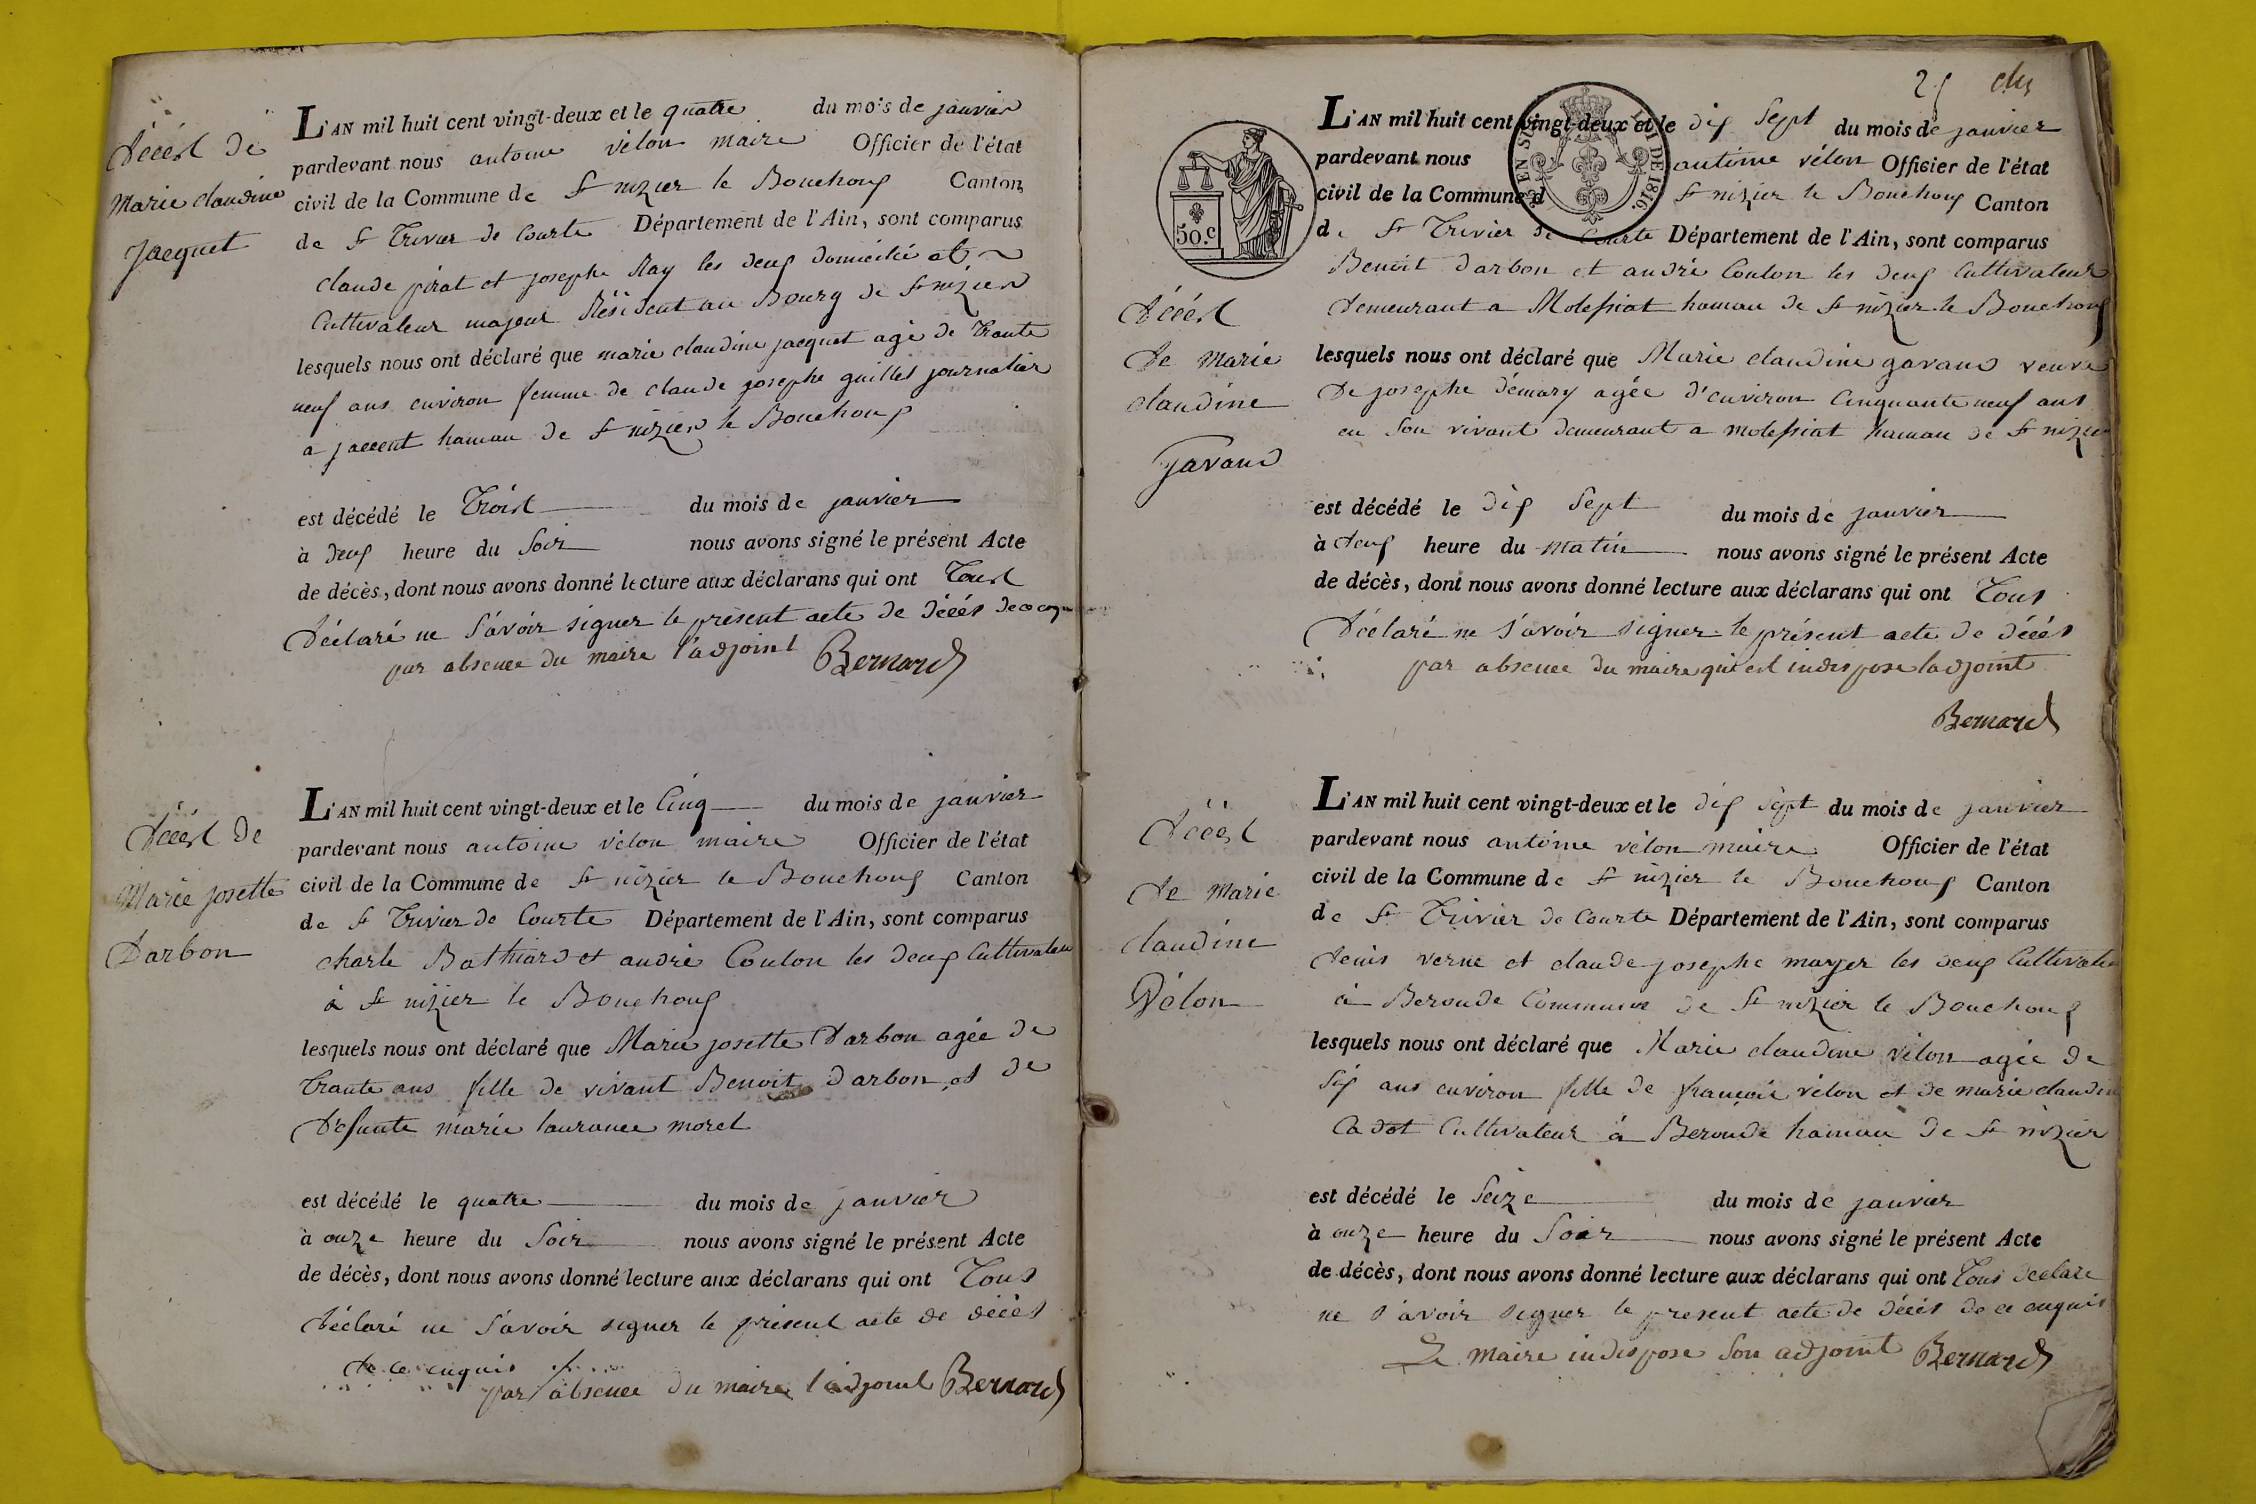 Décést de
Marie claudine
Jacquet
L'AN mil huit cent vingt-deux et le quatre du mois de janvier
pardevant nous antoine vélon maire Officier de l'état
civil de la Commune de St nizier le Bouchoux Canton
de St Trivier de Courte Département de l'Ain, sont comparus
claude pirat et josephe Ray les deux domicilié et
Cultivateur majeur Résident au Bourg de St nizier
lesquels nous ont déclaré que marie claudine jacquet agé de Trante
neuf ans environ femme de claude josephe guillet journalier
a jaccent hamau de St nizier le Bouchoux
est décédé le Troist du mois de janvier
à deux heure du Soir nous avons signé le présent Acte
de décès, dont nous avons donné lecture aux déclarans qui ont Toust
Déclaré ne Sávoir signer le présent acte de décés de ce
par absence du maire l'adjoint Bernard
Décést de
Marie josette
Darbon
L'AN mil huit cent vingt-deux et le Cinq du mois de janvier
pardevant nous antoine vélon maire Officier de l'état
civil de la Commune de St nizier le Bouchoux Canton
de St Trivier de Courte Département de l'Ain, sont comparus
charle Bathiard et andré Coulon les deux Cultivateur
à St nizier le Bouchoux
lesquels nous ont déclaré que Marie josette Darbon agée de
Trante ans fille de vivant Benoit darbon et de
Defunte marie laurance morel
est décédé le quatre du mois de janvier
à onze heure du Soir nous avons signé le présent Acte
de décès, dont nous avons donné lecture aux déclarans qui ont Tous
Déclaré ne Sávoir signer le présent acte de décés
de ce enquis
par absence du maire l'adjoint Bernard
25
50.c
LOI DE 1816.
EN SUS
Décést
de Marie
claudine
gavand
L'AN mil huit cent vingt-deux et le dix Sept du mois de janvier
pardevant nous antoine vélon Officier de l'état
civil de la Commune d St nizier le Bouchoux Canton
de St Trivier de Courte Département de l'Ain, sont comparus
Benoit darbon et andré Coulon les deux Cultivateur
demeurant a Molessiat hamau de St nizier le Bouchoux
lesquels nous ont déclaré que Marie claudine gavand veuve
De josephe démary agée d'environ Cinquante neuf ans
en Son vivant demeurant a molessiat hamau de St nizier
est décédé le dix Sept du mois de janvier
à deux heure du matin nous avons signé le présent Acte
de décès, dont nous avons donné lecture aux déclarans qui ont Tous
Déclaré ne Sávoir signer le présent acte de décés
par absence du maire qui est indispose ladjoint
Bernard
Décést
de Marie
claudine
Vélon
L'AN mil huit cent vingt-deux et le dix Sept du mois de janvier
pardevant nous antoine vélon maire Officier de l'état
civil de la Commune de St nizier le Bouchoux Canton
de St Trivier de Courte Département de l'Ain, sont comparus
denis verne et claude josephe mayer les deux Cultivateur
à Beroude Commune de St nizier le Bouchoux
lesquels nous ont déclaré que Marie claudine vélon agée de
Six ans environ fille de françois vélon et de marie claudine
Cadot Cultivateur à Beroude hamau de St nizier
est décédé le Seize du mois de janvier
à onze heure du Soir nous avons signé le présent Acte
de décès, dont nous avons donné lecture aux déclarans qui ont Tous declaré
ne sávoir signer le present acte de décés de ce enquis
Le maire indispose Son adjoint Bernard